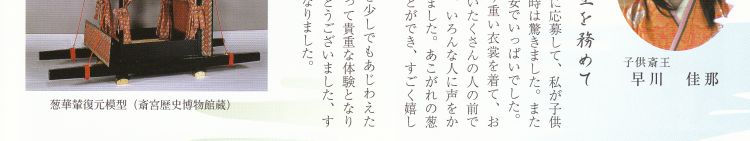 王を務めて
子供斎王
早川　佳那
に応募して、私が子供
時は驚きました。また
安でいっぱいでした。
重い衣裳を着て、お
いたくさんの人の前で
、いろんな人に声をか
ました。あこがれの葱
とができ、すごく嬉し
少しでもあじわえた
って貴重な体験となり
とうございました、す
なりました。
葱華輦復元模型（斎宮歴史博物館蔵）